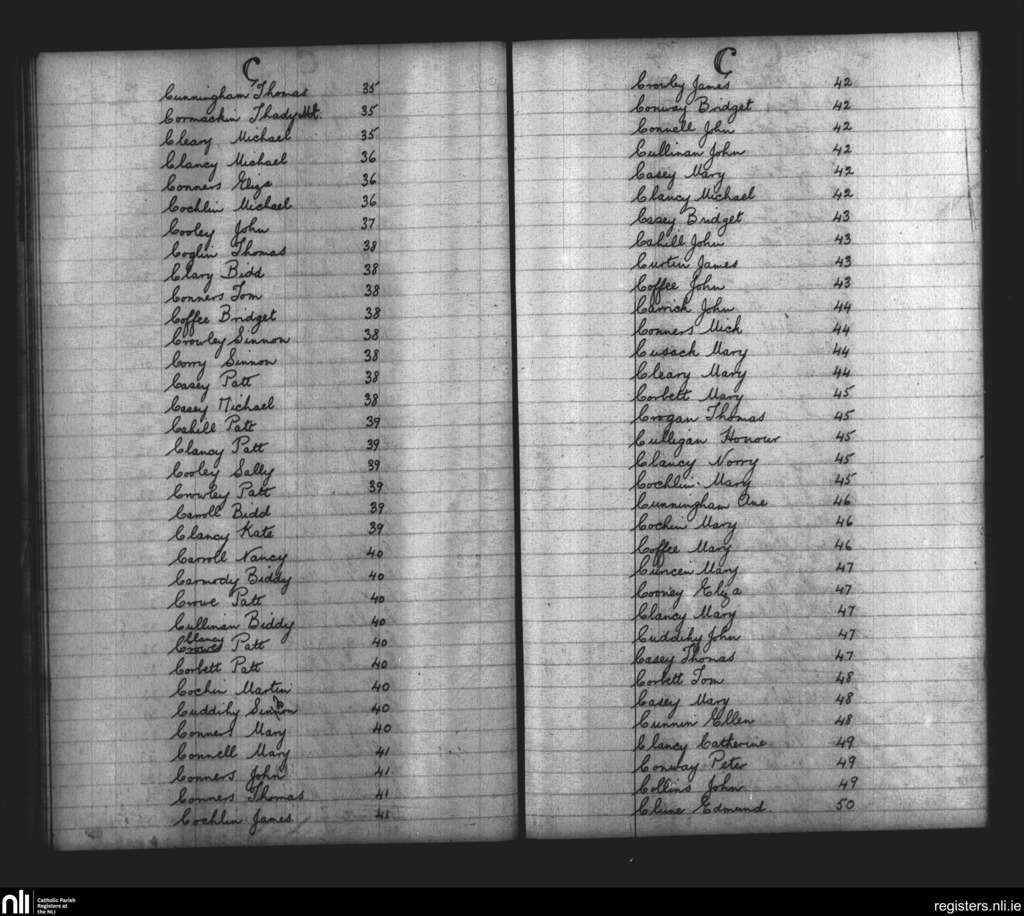 C
Cunningham Thomas 35
Cormackin Thady Mt. 35
Cleary Michael 35
Clancy Michael 36
Conners Eliza 36
Cochlin Michael 36
Cooley John 37
Coglin Thomas 38
Clary Bidd 38
Conners Tom 38
Coffee Bridget 38
Crowley Sinnon 38
Corry Sinnon 38
Casey Patt 38
Casey Michael 38
Cahill Patt 39
Clancy Patt 39
Cooley Sally 39
Crowley Patt 39
Carroll Bidd 39
Clancy Kate 39
Carroll Nancy 40
Carmody Biddy 40
Crowe Patt 40
Cullinan Biddy 40
Clancy
Crowe Patt 40
Corbett Patt 40
Cochin Martin 40
Cuddihy Sinnon 40
Conners Mary 40
Connell Mary 41
Conners John 41
Conners Thomas 41
Cochlin James 41
C
Crowley James 42
Conway Bridget 42
Connell John 42
Cullinan John 42
Casey Mary 42
Clancy Michael 42
Casey Bridget 43
Cahill John 43
Curtin James 43
Coffee John 43
Carrick John 44
Conners Mick 44
Cusack Mary 44
Cleary Mary 44
Corbett Mary 45
Crogan Thomas 45
Culligan Honour 45
Clancy Norry 45
Cochlin Mary 45
Cunningham Ane 46
Cochin Mary 46
Coffee Mary 46
Mary 47
Cooney Eliza 47
Clancy Mary 47
Cuddihy John 47
Casey Thomas 47
Corbett Tom 48
Casey Mary 48
Cunnin Ellen 48
Clancy Catherine 49
Conway Peter 49
Collins John 49
Clune Edmund 50
nli Catholic Parish
Registers at
the NLI
registers.nli.ie